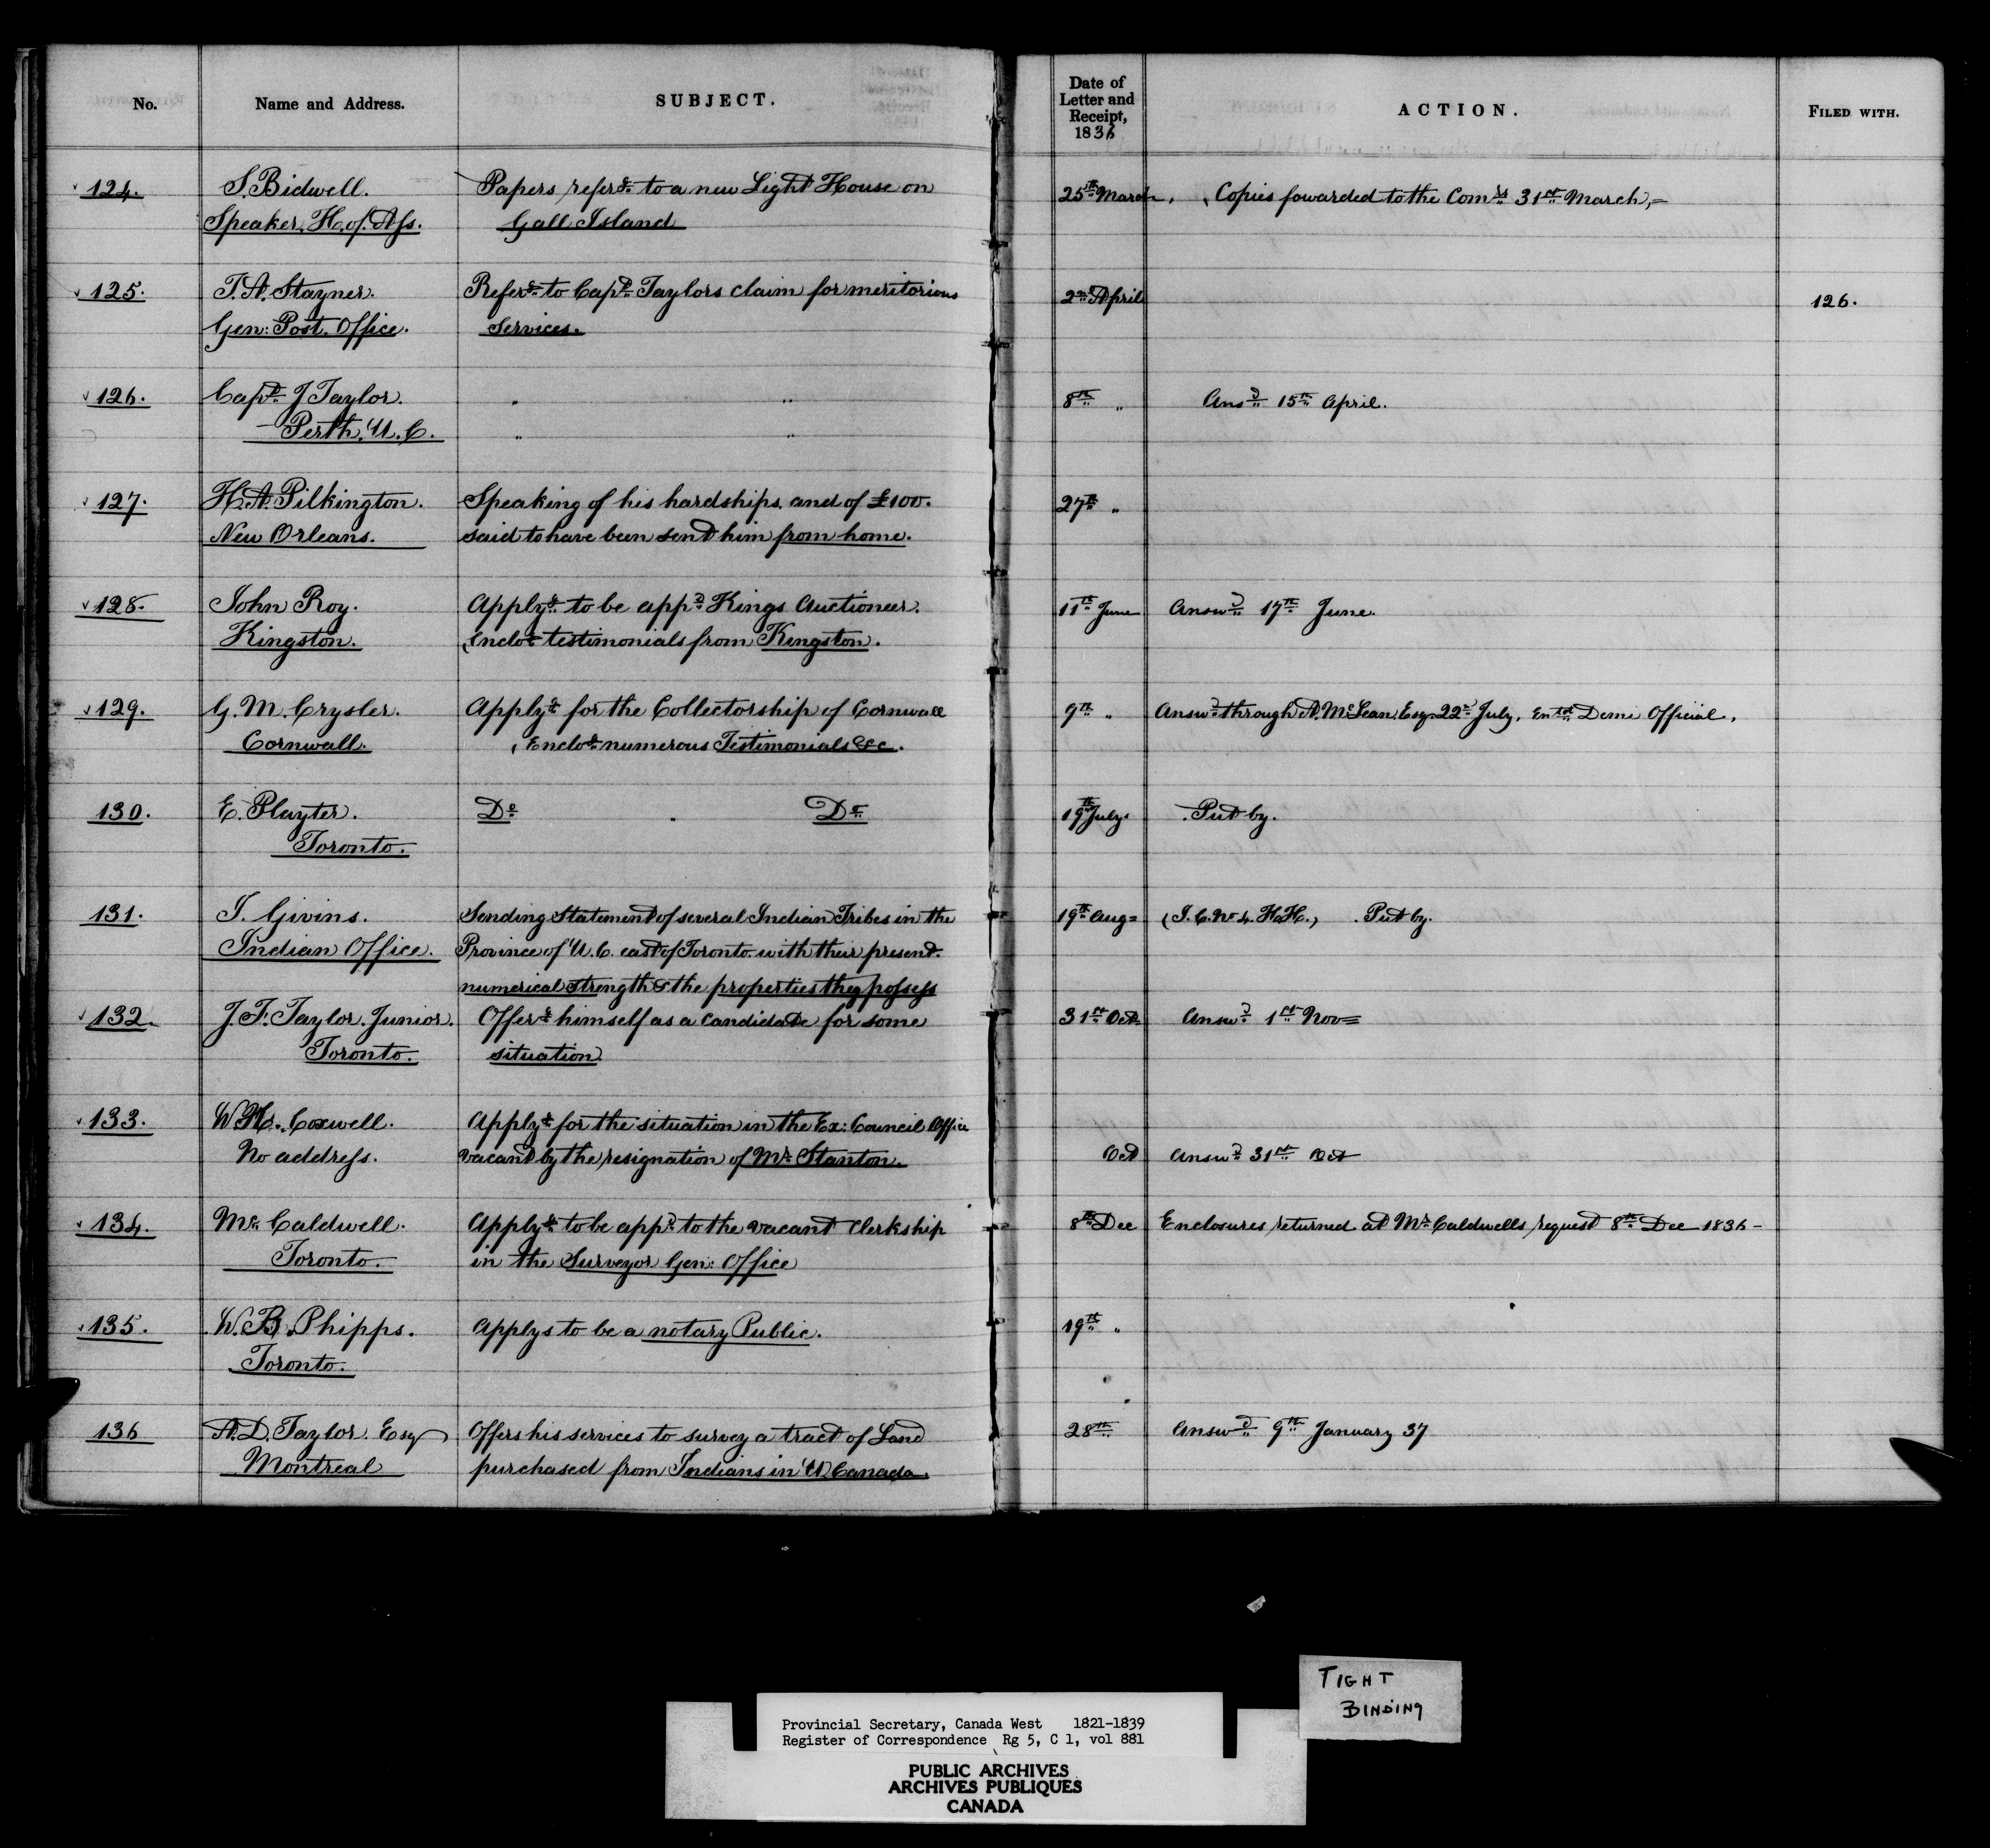 No. Name and Address. SUBJECT. Date of Letter and Receipt, 1836 ACTION. FILED WITH.
124. S. Bidwell. Papers referg. to a new Light House on 25th March, Copies fowarded to the Comrs 31st March,
Speaker, H. of. Ass. Gall Island
125. T. A. Stayner. Referg. to Capt. Taylors claim for meritorious 2nd April 126.
Gen: Post. Office. Services.
126. Capt. J Taylor. " " 8th " Ansd 15th April.
Perth, U. C. " "
127. H. A. Pilkington. Speaking of his hardships, and of £100. 27th "
New Orleans. said to have been send him from home.
128. John Roy. Applyg. to be appd Kings Auctioneer. 11th June Answd 17th June.
Kingston. Enclog testimonials from Kingston.
129. G. M. Crysler. Applyg for the Collectorship of Cornwall 9th " Answd through A. McLean Esqr 22nd July, Entd Demi Official,
Cornwall. Enclog numerous Testimonials &c.
130. E. Playter. Do Do 19th July. Put by.
Toronto.
131. J. Givins. Sending Statement of several Indian Tribes in the 19th Aug (I. C. No 4. H.H.) Put by.
Indian Office. Province of U. C. east of Toronto. with their present.
numerical strength & the properties they possess
132. J. F. Taylor. Junior. Offerg himself as a Candidate for some 31st Oct Answd 1st Nov
Toronto. situation
133. W. H. Coxwell. Applyg for the situation in the Ex: Council Office
No address. vacant by the resignation of Mr. Stanton. Oct Answd 31st Oct
134. Mr. Caldwell. Applyg to be appd to the vacant Clerkship 8th Dec Enclosures returned at Mr Caldwells request 8th Dec 1836 -
Toronto. in the Surveyor Gen: Office
135. W. B. Phipps. Applys to be a notary Public. 19th "
Toronto.
136 A. D. Taylor. Esq Offers his services to survey a tract of Land 28th Answd 9th January 37
Montreal purchased from Indians in U. Canada.
TIGHT
BINDING
Provincial Secretary, Canada West 1821-1839
Register of Correspondence Rg 5, C 1, vol 881
PUBLIC ARCHIVES
ARCHIVES PUBLIQUES
CANADA